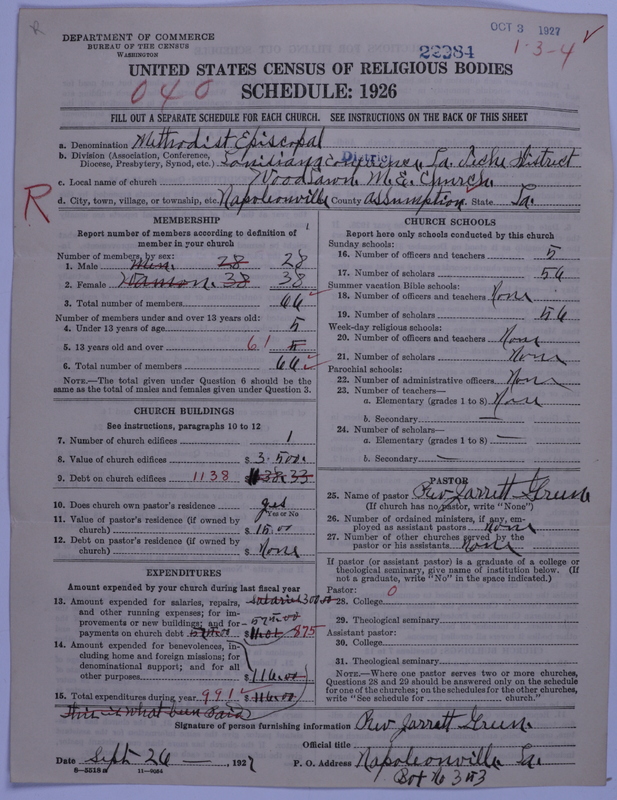 R
OCT 3 1927
DEPARTMENT OF COMMERCE
BUREAU OF THE CENSUS
WASHINGTON
22284
1-3-4
UNITED STATES CENSUS OF RELIGIOUS BODIES
040
SCHEDULE: 1926
FILL OUT A SEPARATE SCHEDULE FOR EACH CHURCH. SEE INSTRUCTIONS ON THE BACK OF THIS SHEET
a. Denomination Methodist Episcopal
b. Division (Association, Conference, Diocese, Presbytery, Synod, etc.) Louisiana Conference La. Teche District
District
c. Local name of church Woodlawn M.E. Church.
d. City, town, village, or township, etc. Napoleonville County Assumption State La.
R
MEMBERSHIP
Report number of members according to definition of
member in your church
Number of members, by sex:
1. Male Men. 28 28
2. Female 38 38
3. Total number of members 66
Number of members under and over 13 years old:
4. Under 13 years of age 5
5. 13 years old and over 61 5
6. Total number of members 66
NOTE.—The total given under Question 6 should be
same as the total of males and females given under Question 3.
CHURCH BUILDINGS
See instructions, paragraphs 10 to 12
7. Number of church edifices 1
8. Value of church edifices $ 3.500.
9. Debt on church edifices 1138 $
10. Does church own pastor's residence yes
Yes or No
11. Value of pastor's residence (if owned by
church) $ 15.00
12. Debt on pastor's residence (if owned by
church) $ None
EXPENDITURES
Amount expended by your church during last fiscal year
13. Amount expended for salaries, repairs, salaries 300.00
and other running expenses; for im-
provements or new buildings; and for
payments on church debt $ 875
14. Amount expended for benevolences, in-
cluding home and foreign missions; for
denominational support; and for all
other purposes $ 116.00
15. Total expenditures during year 991 $ 116.00
this is what been paid
CHURCH SCHOOLS
Report here only schools conducted by this church
Sunday schools:
16. Number of officers and teachers 5
17. Number of scholars 56
Summer vacation Bible schools:
18. Number of officers and teachers None
19. Number of scholars 56
Week-day religious schools:
20. Number of officers and teachers None
21. Number of scholars None
Parochial schools:
22. Number of administrative officers None
23. Number of teachers—
a. Elementary (grades 1 to 8) None
b. Secondary —
24. Number of scholars—
a. Elementary (grades 1 to 8) —
b. Secondary —
PASTOR
25. Name of pastor Rev Jarrett Green
(If church has no pastor, write "None")
26. Number of ordained ministers, if any, em-
ployed as assistant pastors None
27. Number of other churches served by the
pastor or his assistants None
If pastor (or assistant pastor) is a graduate of a college or
theological seminary, give name of institution below. (If
not a graduate, write "No" in the space indicated.)
Pastor: 0
28. College
29. Theological seminary
Assistant pastor:
30. College
31. Theological seminary
NOTE.—Where one pastor serves two or more churches,
Questions 28 and 29 should be answered only on the schedule
for one of the churches; on the schedules for the other churches,
write "See schedule for church."
Signature of person furnishing information Rev Jarrett Green.
Official title
Date Sept 26 —, 1927 P. O. Address Napoleonville La.
8-5518a 11-9084 Box No 353